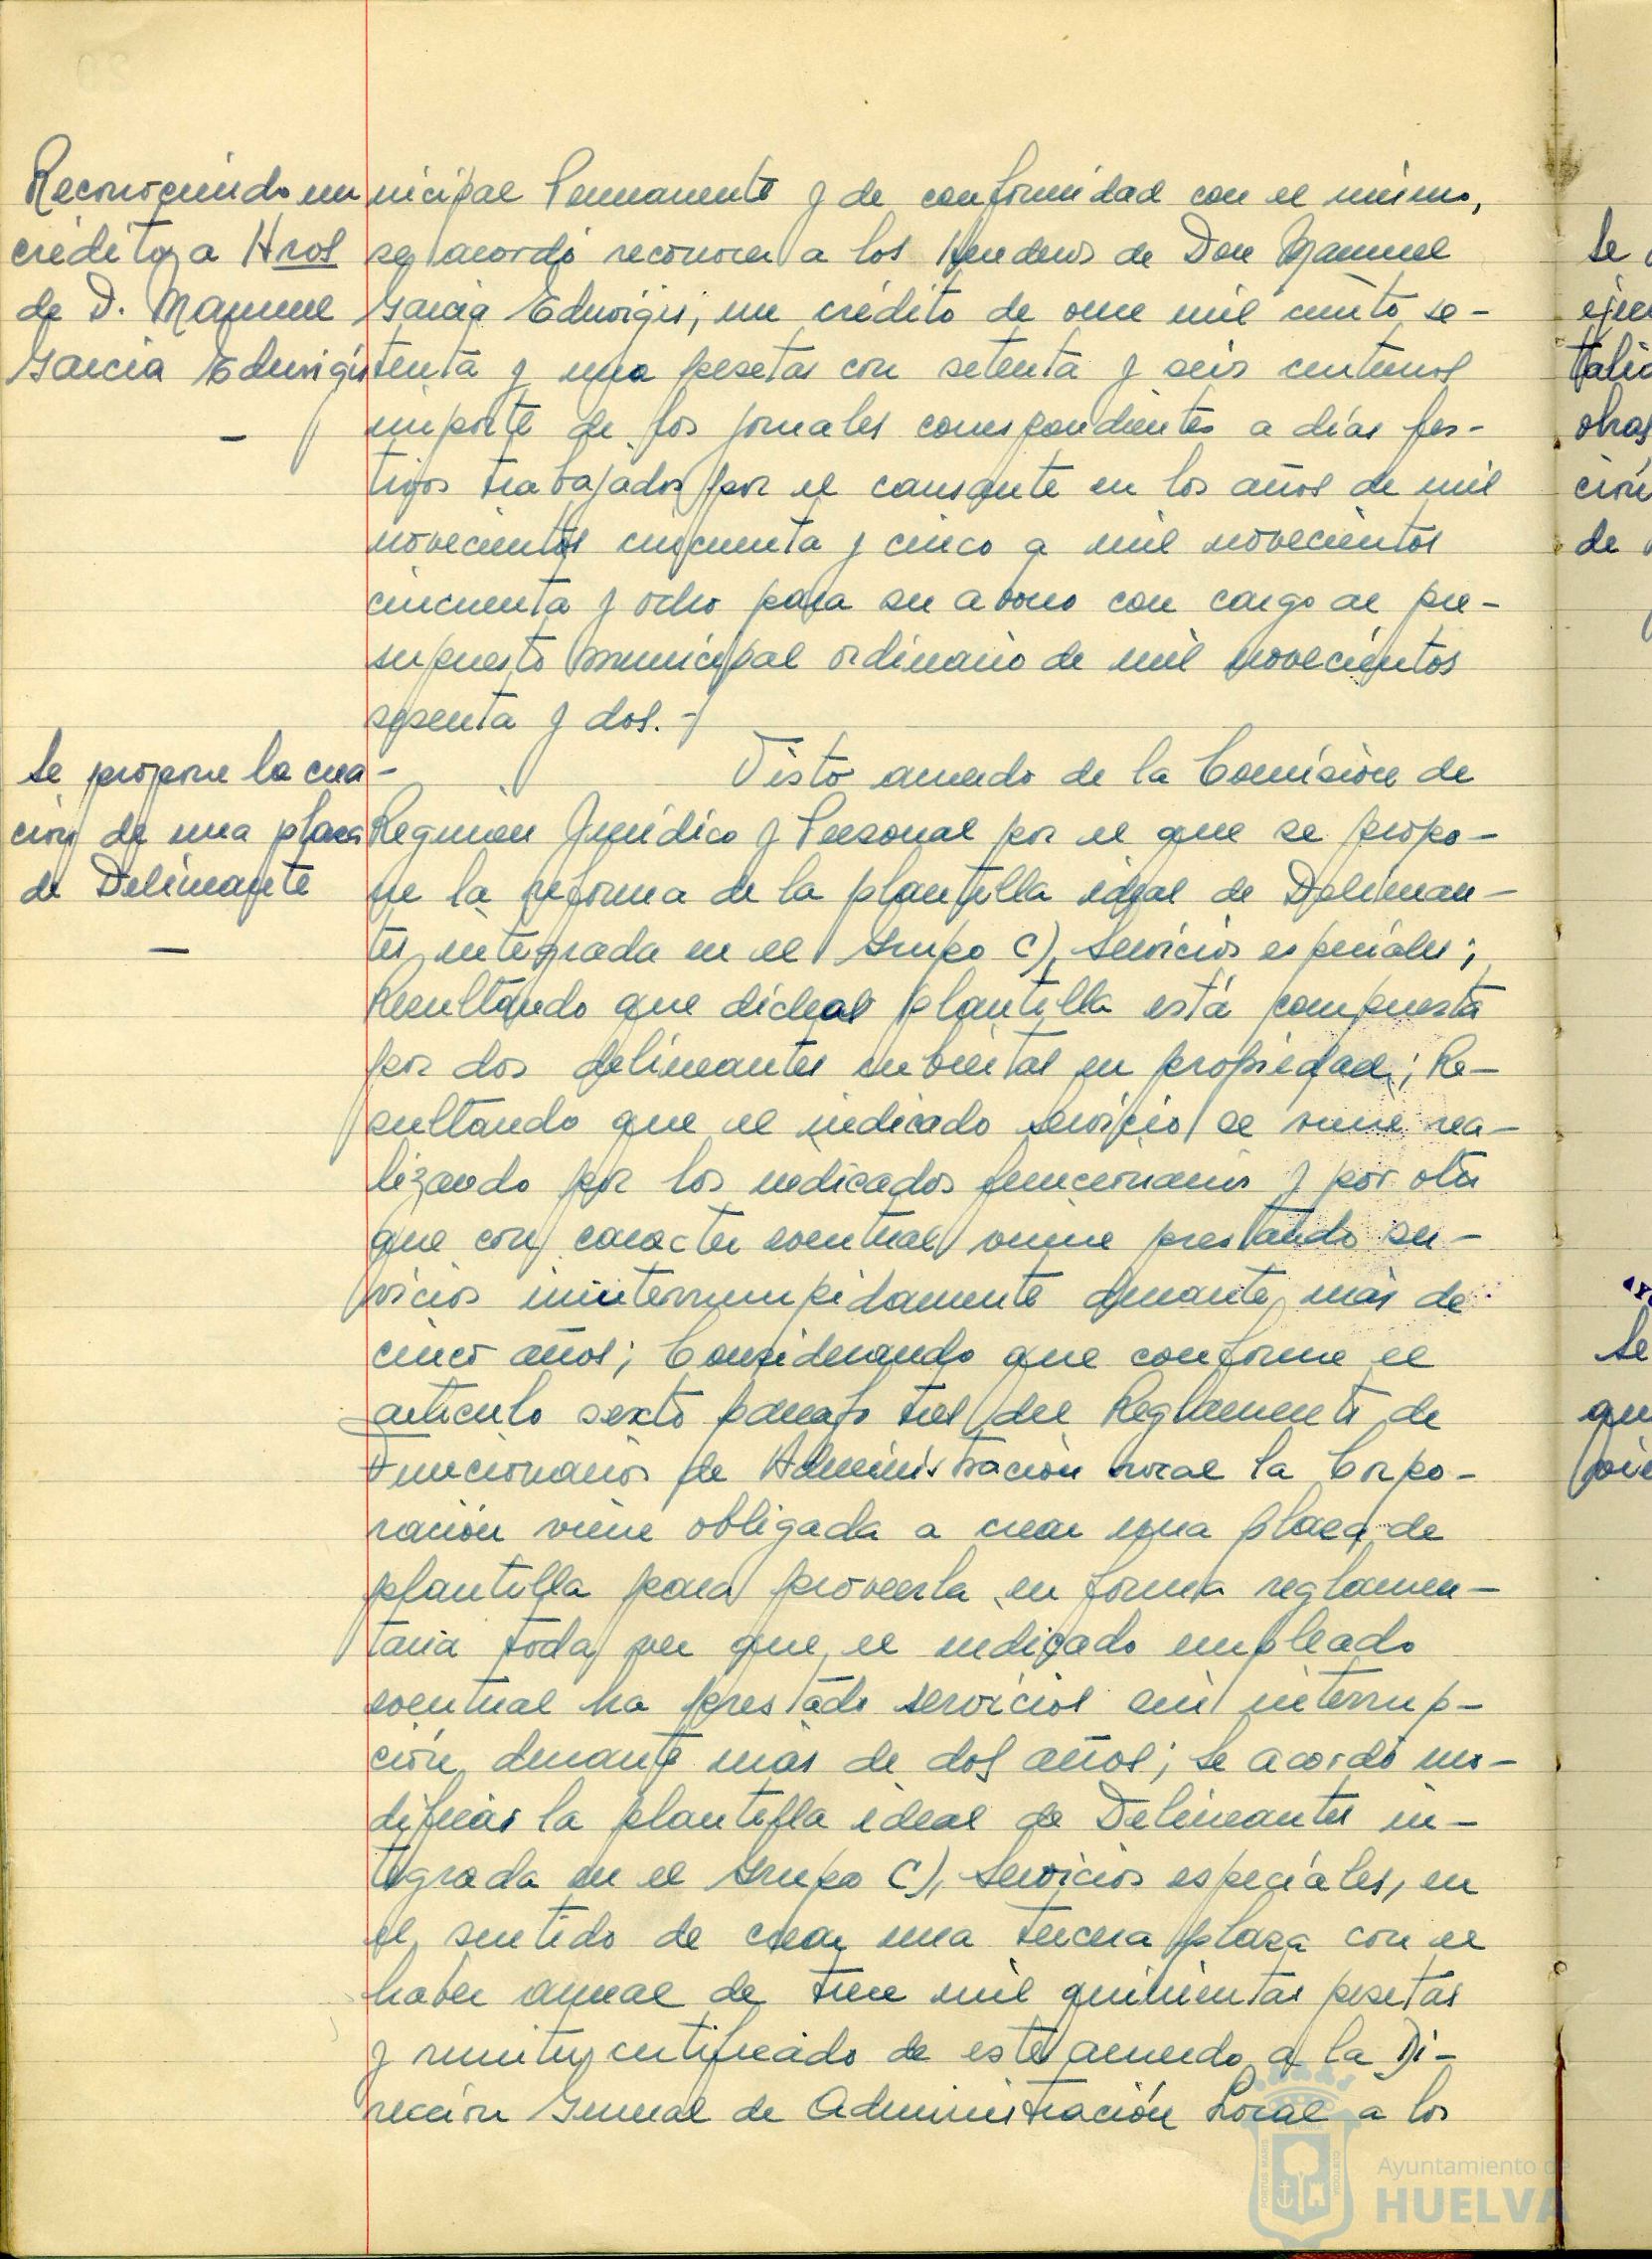 Reconociendo un
crédito a Hros
de D. Manuel
Garcia Eduvigis
nicipal Permanente y de conformidad con el mismo,
se acordó reconocer a los Herederos de Don Manuel
Garcia Eduvigis, un crédito de once mil ciento se-
tenta y una pesetas con setenta y seis centimos
importe de los jornales correspondientes a días fes-
tivos trabajados por el causante en los años de mil
novecientos cincuenta y cinco a mil novecientos
cincuenta y ocho para su abono con cargo al pre-
supuesto municipal ordinario de mil novecientos
sesenta y dos.-
Se propone la crea-
ción de una plaza
de Delineante
Visto acuerdo de la Comisión de
Regimen Jurídico y Personal por el que se propo-
ne la reforma de la plantilla ideal de Delinean-
tes integrada en el Grupo C), Servicios especiales;
Resultando que dicha plantilla está compuesta
por dos delineantes cubiertas en propiedad; Re-
sultando que el indicado servicio se viene rea-
lizando por los indicados funcionarios y por otro
que con caracter eventual viene prestando ser-
vicios ininterrumpidamente durante más de
cinco años; Considerando que conforme el
articulo sexto parrafo tres del Reglamento de
Funcionarios de Administración Local la Corpo-
ración viene obligada a crear una plaza de
plantilla para proveerla en forma reglamen-
taria toda vez que el indicado empleado
eventual ha prestado servicios sin interrup-
ción durante más de dos años; Se acordó mo-
dificar la plantilla ideal de Delineantes in-
tegrada en el Grupo C), Servicios especiales, en
el sentido de crear una tercera plaza con el
haber anual de trece mil quinientas pesetas
y remitir certificado de este acuerdo a la Di-
rección General de Administración Local a los
Ayuntamiento de
HUELVA